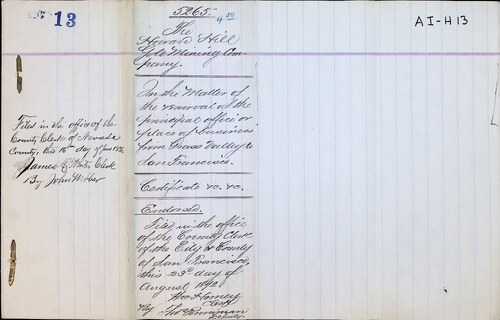 13
5265.
AI-H13
The
Howard Hill
Gold Mining Com-
pany.
In the Matter of
the removal of the
principal office or
place of business
from Grass Valley to
San Francisco.
Certificate &c. &c.
Endorsed.
Filed in the office
of the County Clerk
of the City & County
of San Francisco,
this 23d day of
August 18
Clerk
By
Deputy.
Filed in the office of the
County Clerk of Nevada
County, this day of
James Clerk
By John Webber